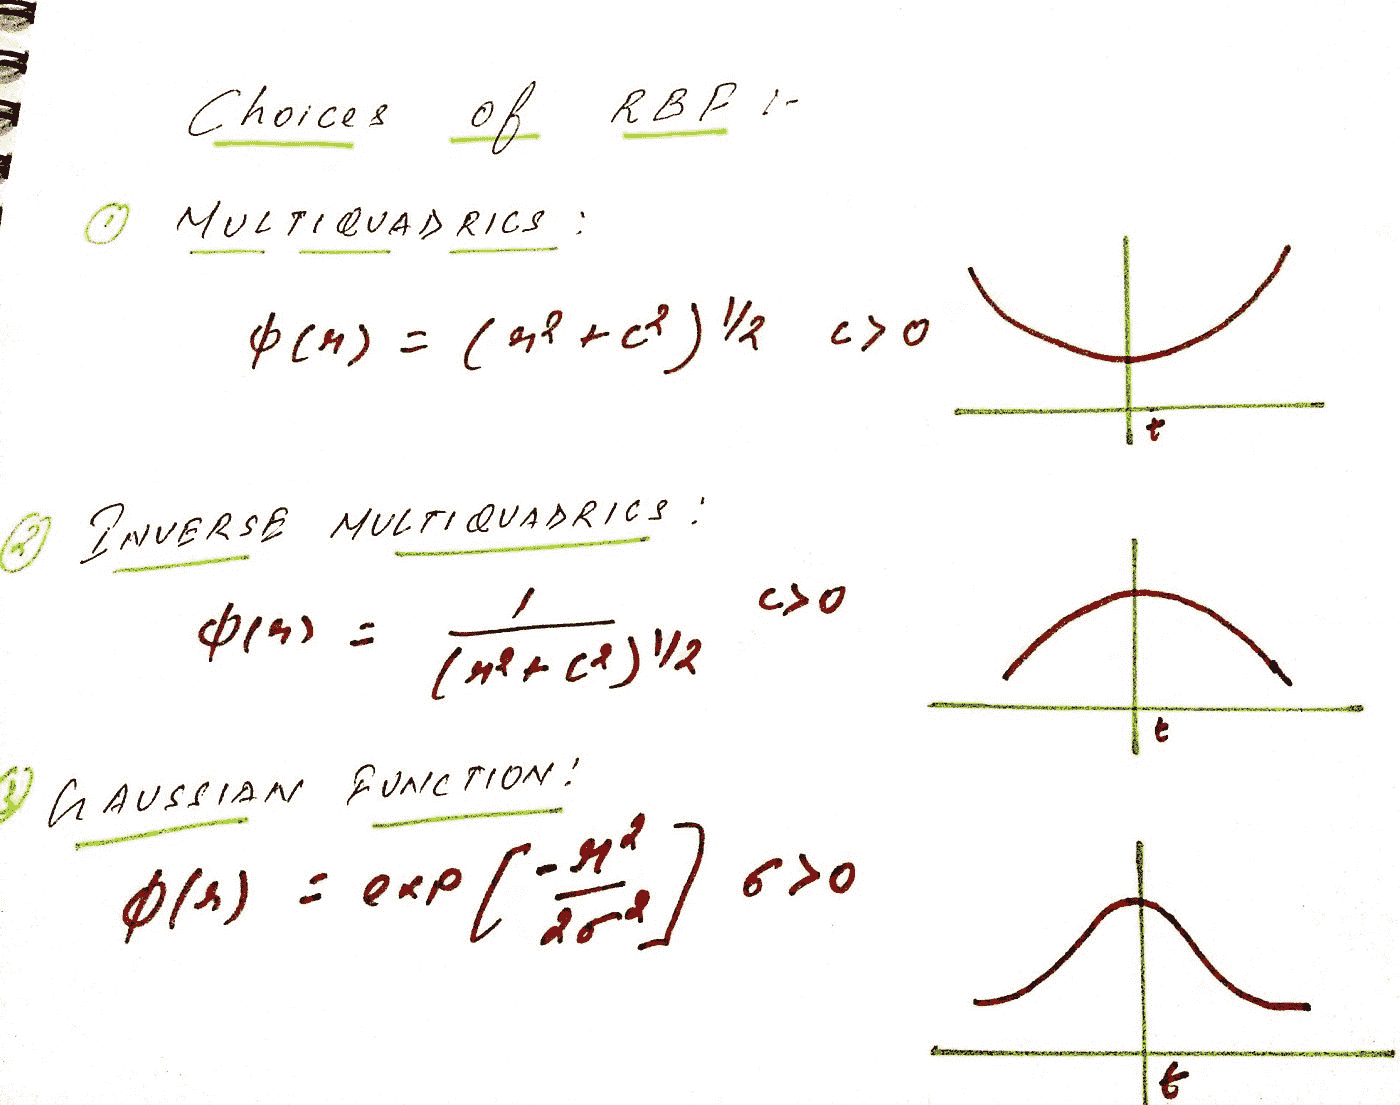 Choices of RBF :-
① MULTIQUADRICS :
φ(r) = (r² + c²)^1/2 c>0
t
② INVERSE MULTIQUADRICS :
φ(r) = 1 / (r² + c²)^1/2 c>0
t
③ GAUSSIAN FUNCTION :
φ(r) = exp [ -r² / 2σ² ] σ>0
t